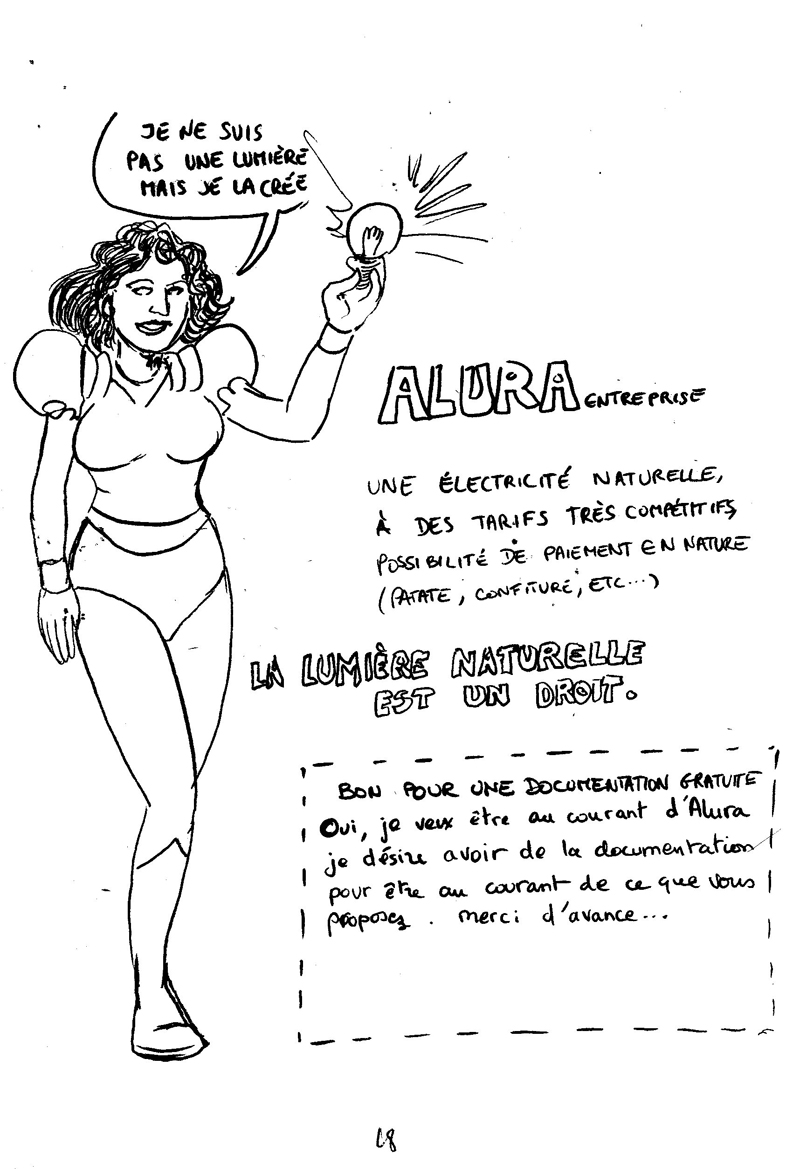 JE NE SUIS
PAS UNE LUMIÈRE
MAIS JE LA CRÉE
ALURA ENTREPRISE
UNE ÉLECTRICITÉ NATURELLE,
À DES TARIFS TRÈS COMPÉTITIFS,
POSSIBILITÉ DE PAIEMENT EN NATURE
(PATATE, CONFITURE, ETC...)
LA LUMIÈRE NATURELLE
EST UN DROIT.
BON POUR UNE DOCUMENTATION GRATUITE
Oui, je veux être au courant d'Alura
je désire avoir de la documentation
pour être au courant de ce que vous
proposez. merci d'avance...
18